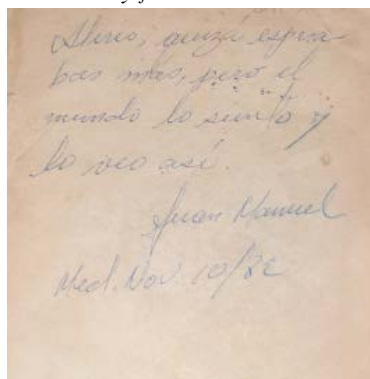 quizá espera-
bas más, pero el
mundo lo siento y
lo veo así.
Juan Manuel
Med. Nov. 10/82